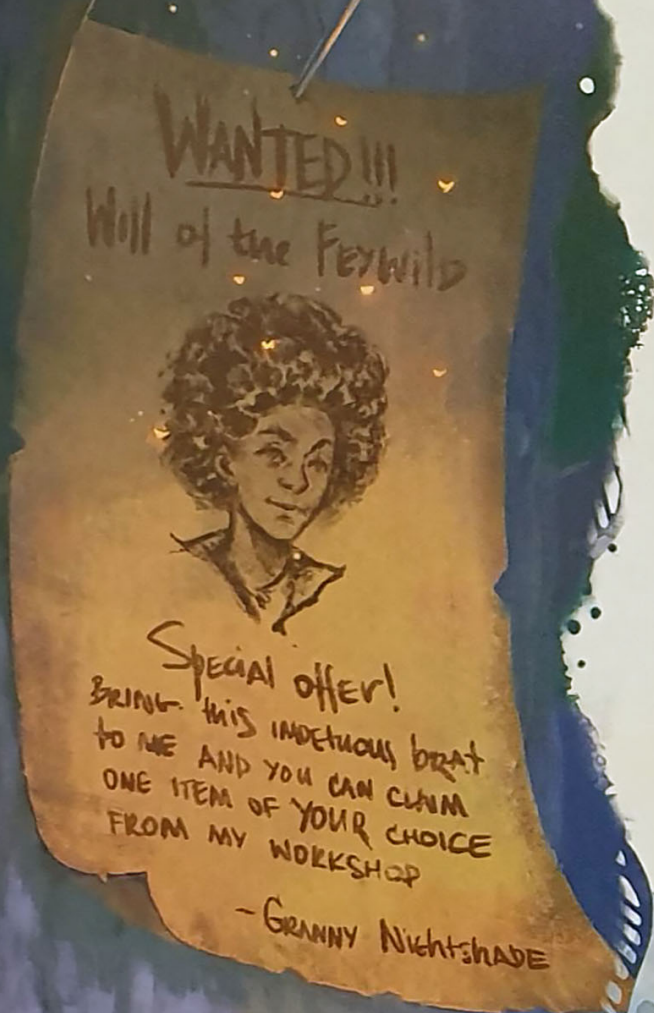 WANTED!!!
Will of the FEYWILD
SPECIAL offer!
BRING this IMPETUOUS BRAT
to ME AND YOU CAN CLAIM
ONE ITEM OF YOUR CHOICE
FROM MY WORKSHOP
-GRANNY NightshADE